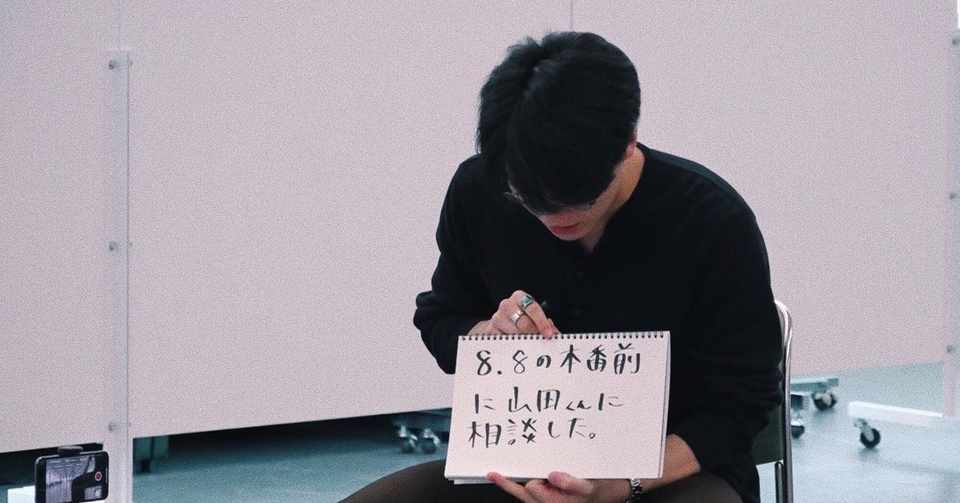 8.8の本番前
に山田くんに
相談した。